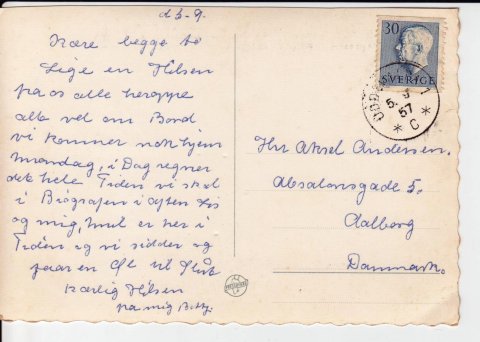 d 5-9.
Kære begge to
Lige en Hilsen
fra os alle heroppe
alt vel om Bord
vi kommer nok hjem
mandag, i Dag regner
det hele Tiden vi skal
i Biografen i aften Lis
og mig, er her i
Tiden og vi sidder og
en Øl til
kærlig Hilsen
fra mig
30
SVERIGE
5. 9
57
* C *
Hr Aksel Andersen.
Absalonsgade 5.
Aalborg
Danmark.